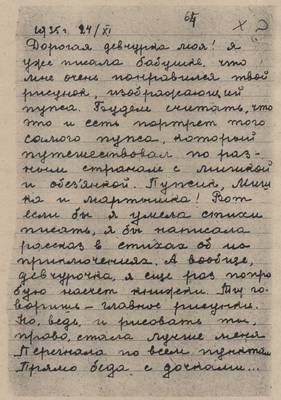 64
1935 г. 24/XI
Дорогая девчурка моя! Я
уже писала бабушке, что
мне очень понравился твой
рисунок, изображающий
пупса. Будем считать, что
это и есть портрет того
самого пупса, который
путешествовал по раз-
ным странам с мишкой
и обезьянкой. Пупсик, Миш
ка и мартышка! Вот
если бы я умела стихи
писать, я бы написала
рассказ в стихах об их
приключениях. А вообще,
девчурочка, я еще раз попро
бую насчет книжки. Ты го-
воришь – главное рисунки.
Но, ведь, и рисовать ты,
право, стала лучше меня.
Перегнала по всем пунктам.
Прямо беда с дочками...